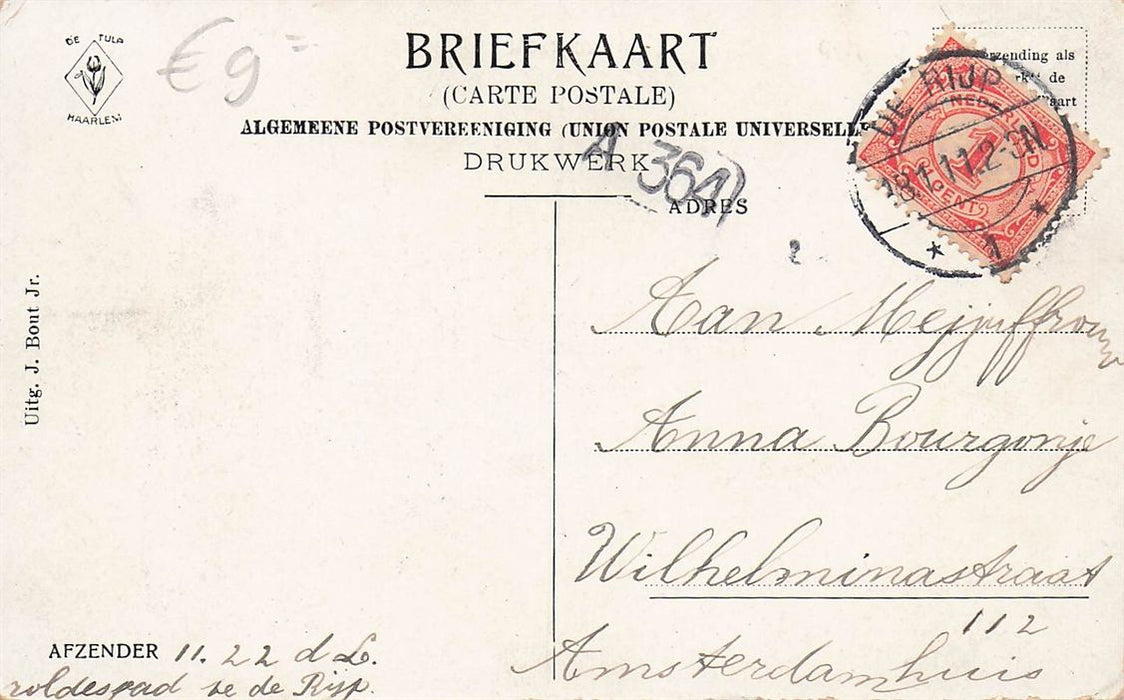 DE TULP
HAARLEM
€ 9=
BRIEFKAART
(CARTE POSTALE)
ALGEMEENE POSTVEREENIGING (UNION POSTALE UNIVERSELLE
DRUKWERK
A 364
ADRES
rzending als
de
aart
DE RIJP
NEDE
1
CENT
1
Uitg. J. Bout Jr.
Aan Mejjuffrouw
Anna Bourgonje
Wilhelminastraat
112
Amsterdam huis
AFZENDER 11. 22 d L.
te de Rijp.